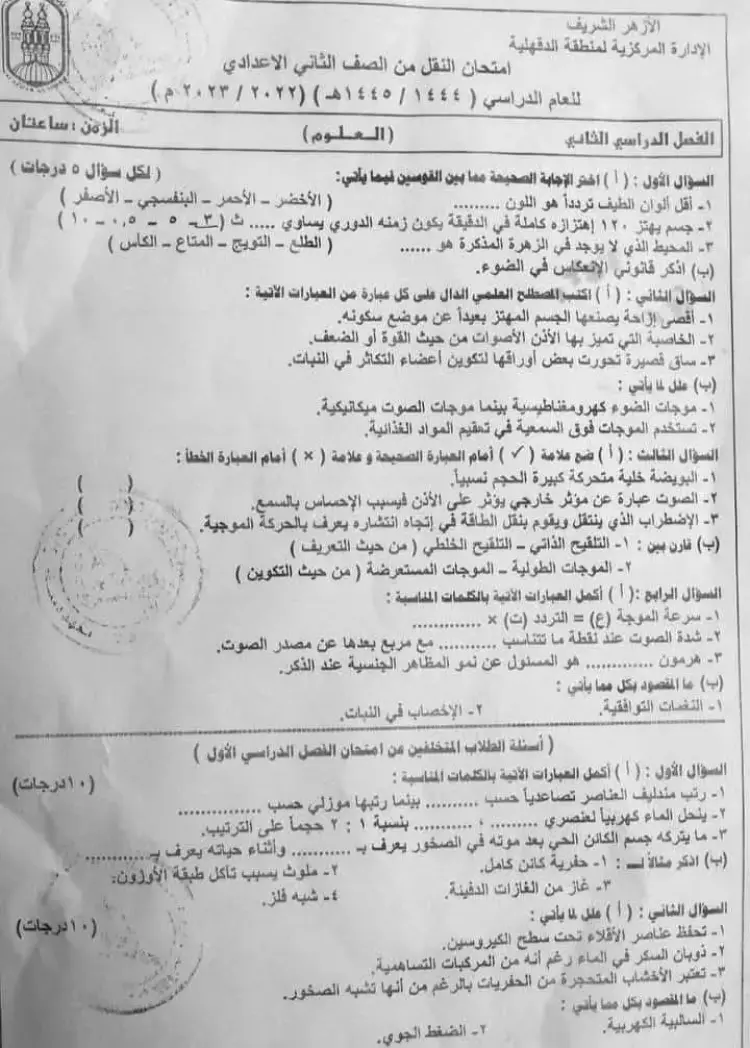 الأزهر الشريف
الإدارة المركزية لمنطقة الدقهلية
امتحان النقل من الصف الثاني الاعدادي
للعام الدراسي ( ١٤٤٤ / ١٤٤٥هـ ) (٢٠٢٢ / ٢٠٢٣ م )
الفصل الدراسي الثاني ( العلوم ) الزمن : ساعتان
السؤال الأول : ( أ ) اختر الإجابة الصحيحة مما بين القوسين فيما يأتي: ( لكل سؤال ٥ درجات )
١- أقل ألوان الطيف تردداً هو اللون ......... ( الأخضر – الأحمر – البنفسجي – الأصفر )
٢- جسم يهتز ١٢٠ إهتزازه كاملة في الدقيقة يكون زمنه الدوري يساوي ..... ث ( ٣ – ٥ – ٠,٥ – ١٠ )
٣- المحيط الذي لا يوجد في الزهرة المذكرة هو ...... ( الطلع – التويج – المتاع – الكأس )
(ب) اذكر قانوني الإنعكاس في الضوء.
السؤال الثاني : ( أ ) اكتب المصطلح العلمي الدال على كل عبارة من العبارات الآتية :
١- أقصى إزاحة يصنعها الجسم المهتز بعيداً عن موضع سكونه.
٢- الخاصية التي تميز بها الأذن الأصوات من حيث القوة أو الضعف.
٣- ساق قصيرة تحورت بعض أوراقها لتكوين أعضاء التكاثر في النبات.
(ب) علل لما يأتي :
١- موجات الضوء كهرومغناطيسية بينما موجات الصوت ميكانيكية.
٢- تستخدم الموجات فوق السمعية في تعقيم المواد الغذائية.
السؤال الثالث : ( أ ) ضع علامة ( ✓ ) أمام العبارة الصحيحة و علامة ( × ) أمام العبارة الخطأ :
١- البويضة خلية متحركة كبيرة الحجم نسبياً. ( )
٢- الصوت عبارة عن مؤثر خارجي يؤثر على الأذن فيسبب الإحساس بالسمع. ( )
٣- الإضطراب الذي ينتقل ويقوم بنقل الطاقة في إتجاه انتشاره يعرف بالحركة الموجية. ( )
(ب) قارن بين : ١- التلقيح الذاتي – التلقيح الخلطي ( من حيث التعريف )
٢- الموجات الطولية – الموجات المستعرضة ( من حيث التكوين )
السؤال الرابع : ( أ ) أكمل العبارات الآتية بالكلمات المناسبة :
١- سرعة الموجة (ع) = التردد (ت) × .............
٢- شدة الصوت عند نقطة ما تتناسب .......... مع مربع بعدها عن مصدر الصوت.
٣- هرمون ............ هو المسئول عن نمو المظاهر الجنسية عند الذكر.
(ب) ما المقصود بكل مما يأتي :
١- النغمات التوافقية. ٢- الإخصاب في النبات.
( أسئلة الطلاب المتخلفين من امتحان الفصل الدراسي الأول )
السؤال الأول : ( أ ) أكمل العبارات الآتية بالكلمات المناسبة : (١٠درجات)
١- رتب مندليف العناصر تصاعدياً حسب .......... بينما رتبها موزلي حسب ...............
٢- ينحل الماء كهربياً لعنصري ......... ، ........... بنسبة ١ : ٢ حجماً على الترتيب.
٣- ما يتركه جسم الكائن الحي بعد موته في الصخور يعرف بـ ........... وأثناء حياته يعرف بـ............
(ب) اذكر مثالاً لـــ : ١- حفرية كائن كامل. ٢- ملوث يسبب تآكل طبقة الأوزون.
٣- غاز من الغازات الدفيئة. ٤- شبه فلز.
السؤال الثاني : ( أ ) علل لما يأتي : (١٠درجات)
١- تحفظ عناصر الأقلاء تحت سطح الكيروسين.
٢- ذوبان السكر في الماء رغم أنه من المركبات التساهمية.
٣- تعتبر الأخشاب المتحجرة من الحفريات بالرغم من أنها تشبه الصخور.
(ب) ما المقصود بكل مما يأتي :
١- السالبية الكهربية. ٢- الضغط الجوي.